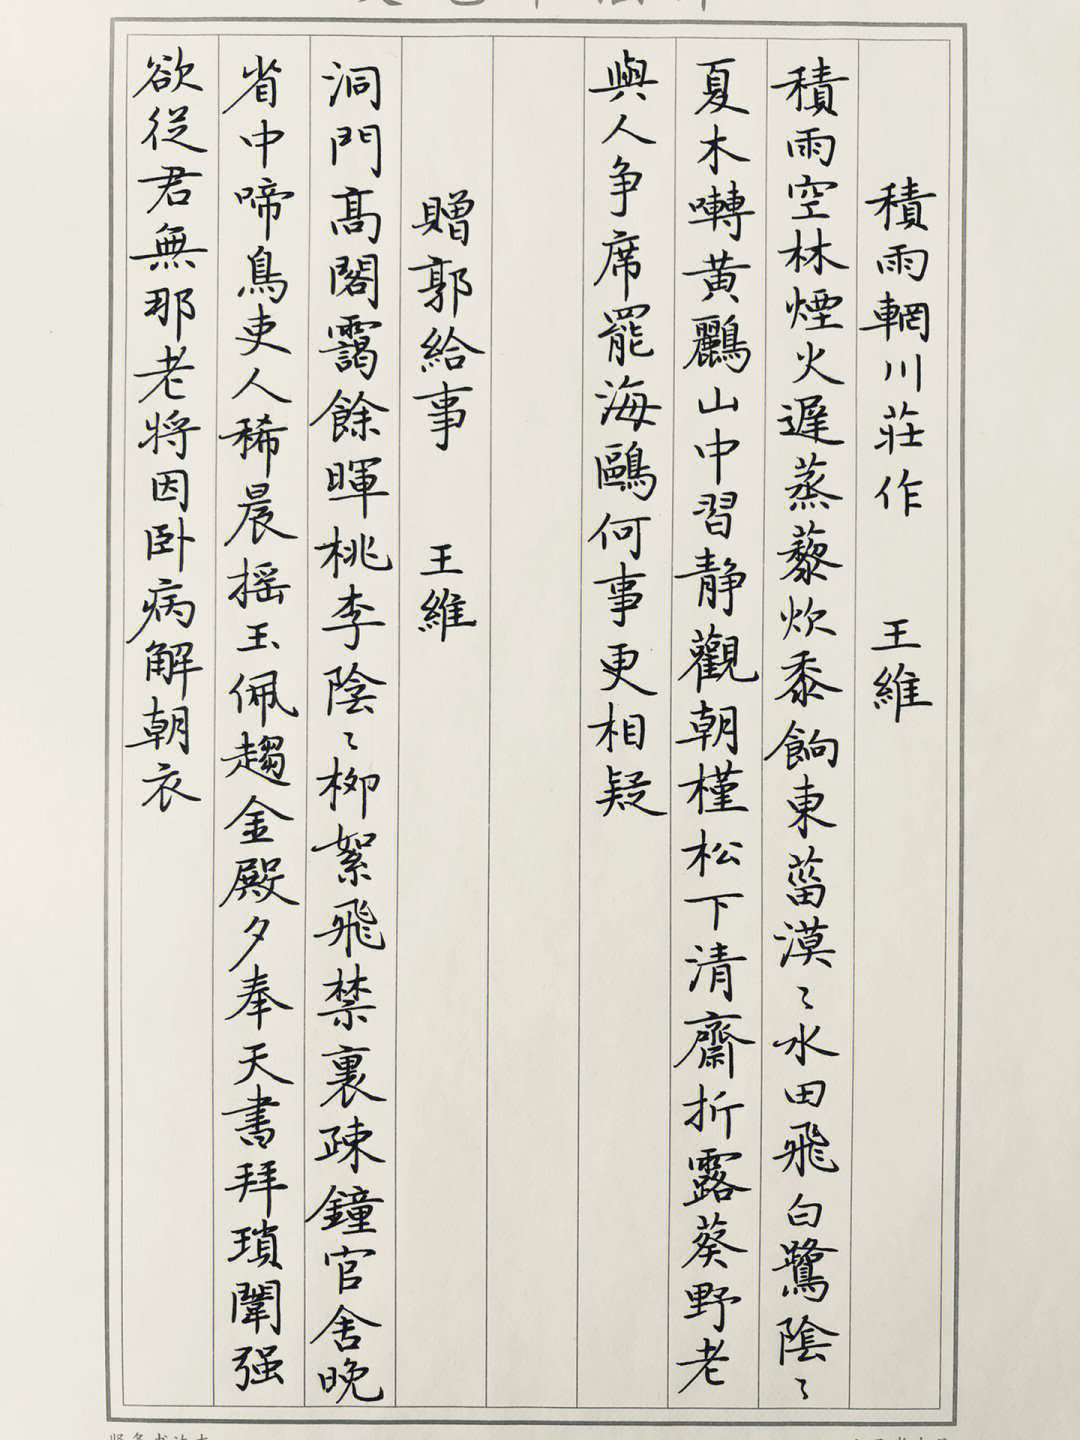 積雨輞川莊作 王維
積雨空林煙火遲蒸藜炊黍餉東菑漠〻水田飛白鷺陰〻
夏木囀黃鸝山中習靜觀朝槿松下清齋折露葵野老
與人争席罷海鷗何事更相疑
贈郭給事 王維
洞門高閣靄餘暉桃李陰〻柳絮飛禁裏疎鐘官舍晚
省中啼鳥吏人稀晨摇玉佩趨金殿夕奉天書拜瑣闈强
欲從君無那老将因卧病解朝衣